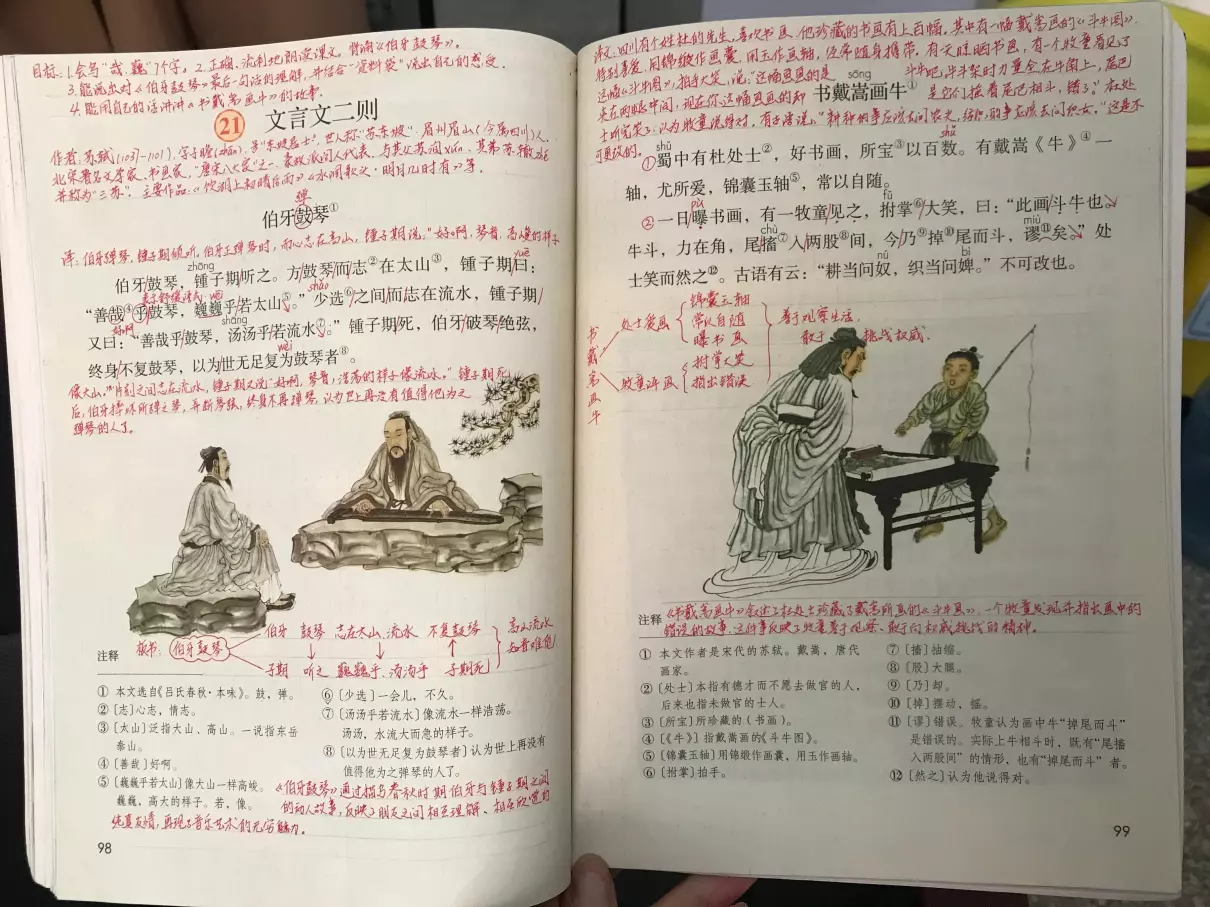 目标：1.会写“哉、巍”7个字。2.正确、流利地朗读课文，背诵《伯牙鼓琴》。
3.能说出对《伯牙鼓琴》最后一句话的理解，并结合“资料袋”说出自己的感受。
4.能用自己的话讲讲《书戴嵩画牛》的故事。
21 文言文二则
作者：苏轼(1037-1101)，字子瞻(zhān)，号“东坡居士”，世人称“苏东坡”。眉州眉山（今属四川）人。
北宋著名文学家、书画家，“唐宋八大家”之一，豪放派词人代表。与其父苏洵xún、其弟苏辙zhé
并称为“三苏”。主要作品：《饮湖上初晴后雨》《水调歌头·明月几时有》等。
弹
伯牙鼓琴①
译：伯牙弹琴，锺子期倾听。伯牙正弹琴时，而心志在高山，锺子期说：“好啊，琴音，高峻的样子
zhōng yuē
伯牙鼓琴，锺子期听之。方鼓琴而志②在太山③，锺子期曰：
表示舒缓语气 wēi shǎo
“善哉④乎鼓琴，巍巍乎若太山⑤。”少选⑥之间而志在流水，锺子期
好啊 shāng
又曰：“善哉乎鼓琴，汤汤乎若流水⑦。”锺子期死，伯牙破琴绝弦，
wèi
终身不复鼓琴，以为世无足复为鼓琴者⑧。
像大山。”片刻之间志在流水，锺子期又说：“好啊，琴音，浩荡的样子像流水。”锺子期死
后，伯牙摔坏所弹之琴，弄断琴弦，终身不再弹琴，认为世上再没有值得他为之
弹琴的人了。
板书：伯牙鼓琴
伯牙 鼓琴 志在太山、流水 不复鼓琴
子期 听之 巍巍乎、汤汤乎 子期死
高山流水
知音难觅
注释
① 本文选自《吕氏春秋·本味》。鼓，弹。
②〔志〕心志，情志。
③〔太山〕泛指大山、高山。一说指东岳
泰山。
④〔善哉〕好啊。
⑤〔巍巍乎若太山〕像大山一样高峻。
巍巍，高大的样子。若，像。
⑥〔少选〕一会儿，不久。
⑦〔汤汤乎若流水〕像流水一样浩荡。
汤汤，水流大而急的样子。
⑧〔以为世无足复为鼓琴者〕认为世上再没有
值得他为之弹琴的人了。
《伯牙鼓琴》通过描写春秋时期伯牙与锺子期之间
的动人故事，反映了朋友之间相互理解、相互欣赏的
纯真友情，再现了音乐艺术的无穷魅力。
98
译文：四川有个姓杜的先生，喜欢书画，他珍藏的书画有上百幅。其中有一幅戴嵩的《斗牛图》，
特别喜爱，用锦缎作画囊，用玉作画轴，经常随身携带。有一天晒书画，有一个牧童看见了
这幅《斗牛图》，拍手大笑，说：“这幅画画的是 斗牛吧，牛斗架时力量全在牛角上，尾巴
sōng
夹在两腿中间，现在你这幅画画的却 书戴嵩画牛① 是它们摇着尾巴相斗，错了。”杜处
士听完笑了，认为牧童说得对，有古语说：“耕种的事应该去问农夫，纺织的事应该去问织女。”这是不
可更改的。
shǔ chǔ shǔ
①蜀中有杜处士②，好书画，所宝③以百数。有戴嵩《牛》④一
轴，尤所爱，锦囊玉轴⑤，常以自随。
pù fǔ
②一日曝书画，有一牧童见之，拊掌⑥大笑，曰：“此画斗牛也。
chù miù
牛斗，力在角，尾搐⑦入两股⑧间，今乃⑨掉⑩尾而斗，谬⑪矣。”处
nú bì
士笑而然之⑫。古语有云：“耕当问奴，织当问婢。”不可改也。
书戴嵩画牛
处士爱画
锦囊玉轴
常以自随
曝书画
牧童评画
拊掌大笑
指出错误
善于观察生活，
敢于 挑战权威。
《书戴嵩画牛》叙述了杜处士珍藏了戴嵩所画的《斗牛画》，一个牧童发现并指出画中的
错误的故事。这件事反映了牧童善于观察、敢于向权威挑战的精神。
注释
① 本文作者是宋代的苏轼。戴嵩，唐代
画家。
②〔处士〕本指有德才而不愿去做官的人，
后来也指未做官的士人。
③〔所宝〕所珍藏的（书画）。
④〔《牛》〕指戴嵩画的《斗牛图》。
⑤〔锦囊玉轴〕用锦缎作画囊，用玉作画轴。
⑥〔拊掌〕拍手。
⑦〔搐〕抽缩。
⑧〔股〕大腿。
⑨〔乃〕却。
⑩〔掉〕摆动，摇。
⑪〔谬〕错误。牧童认为画中牛“掉尾而斗”
是错误的。实际上牛相斗时，既有“尾搐
入两股间”的情形，也有“掉尾而斗”者。
⑫〔然之〕认为他说得对。
99